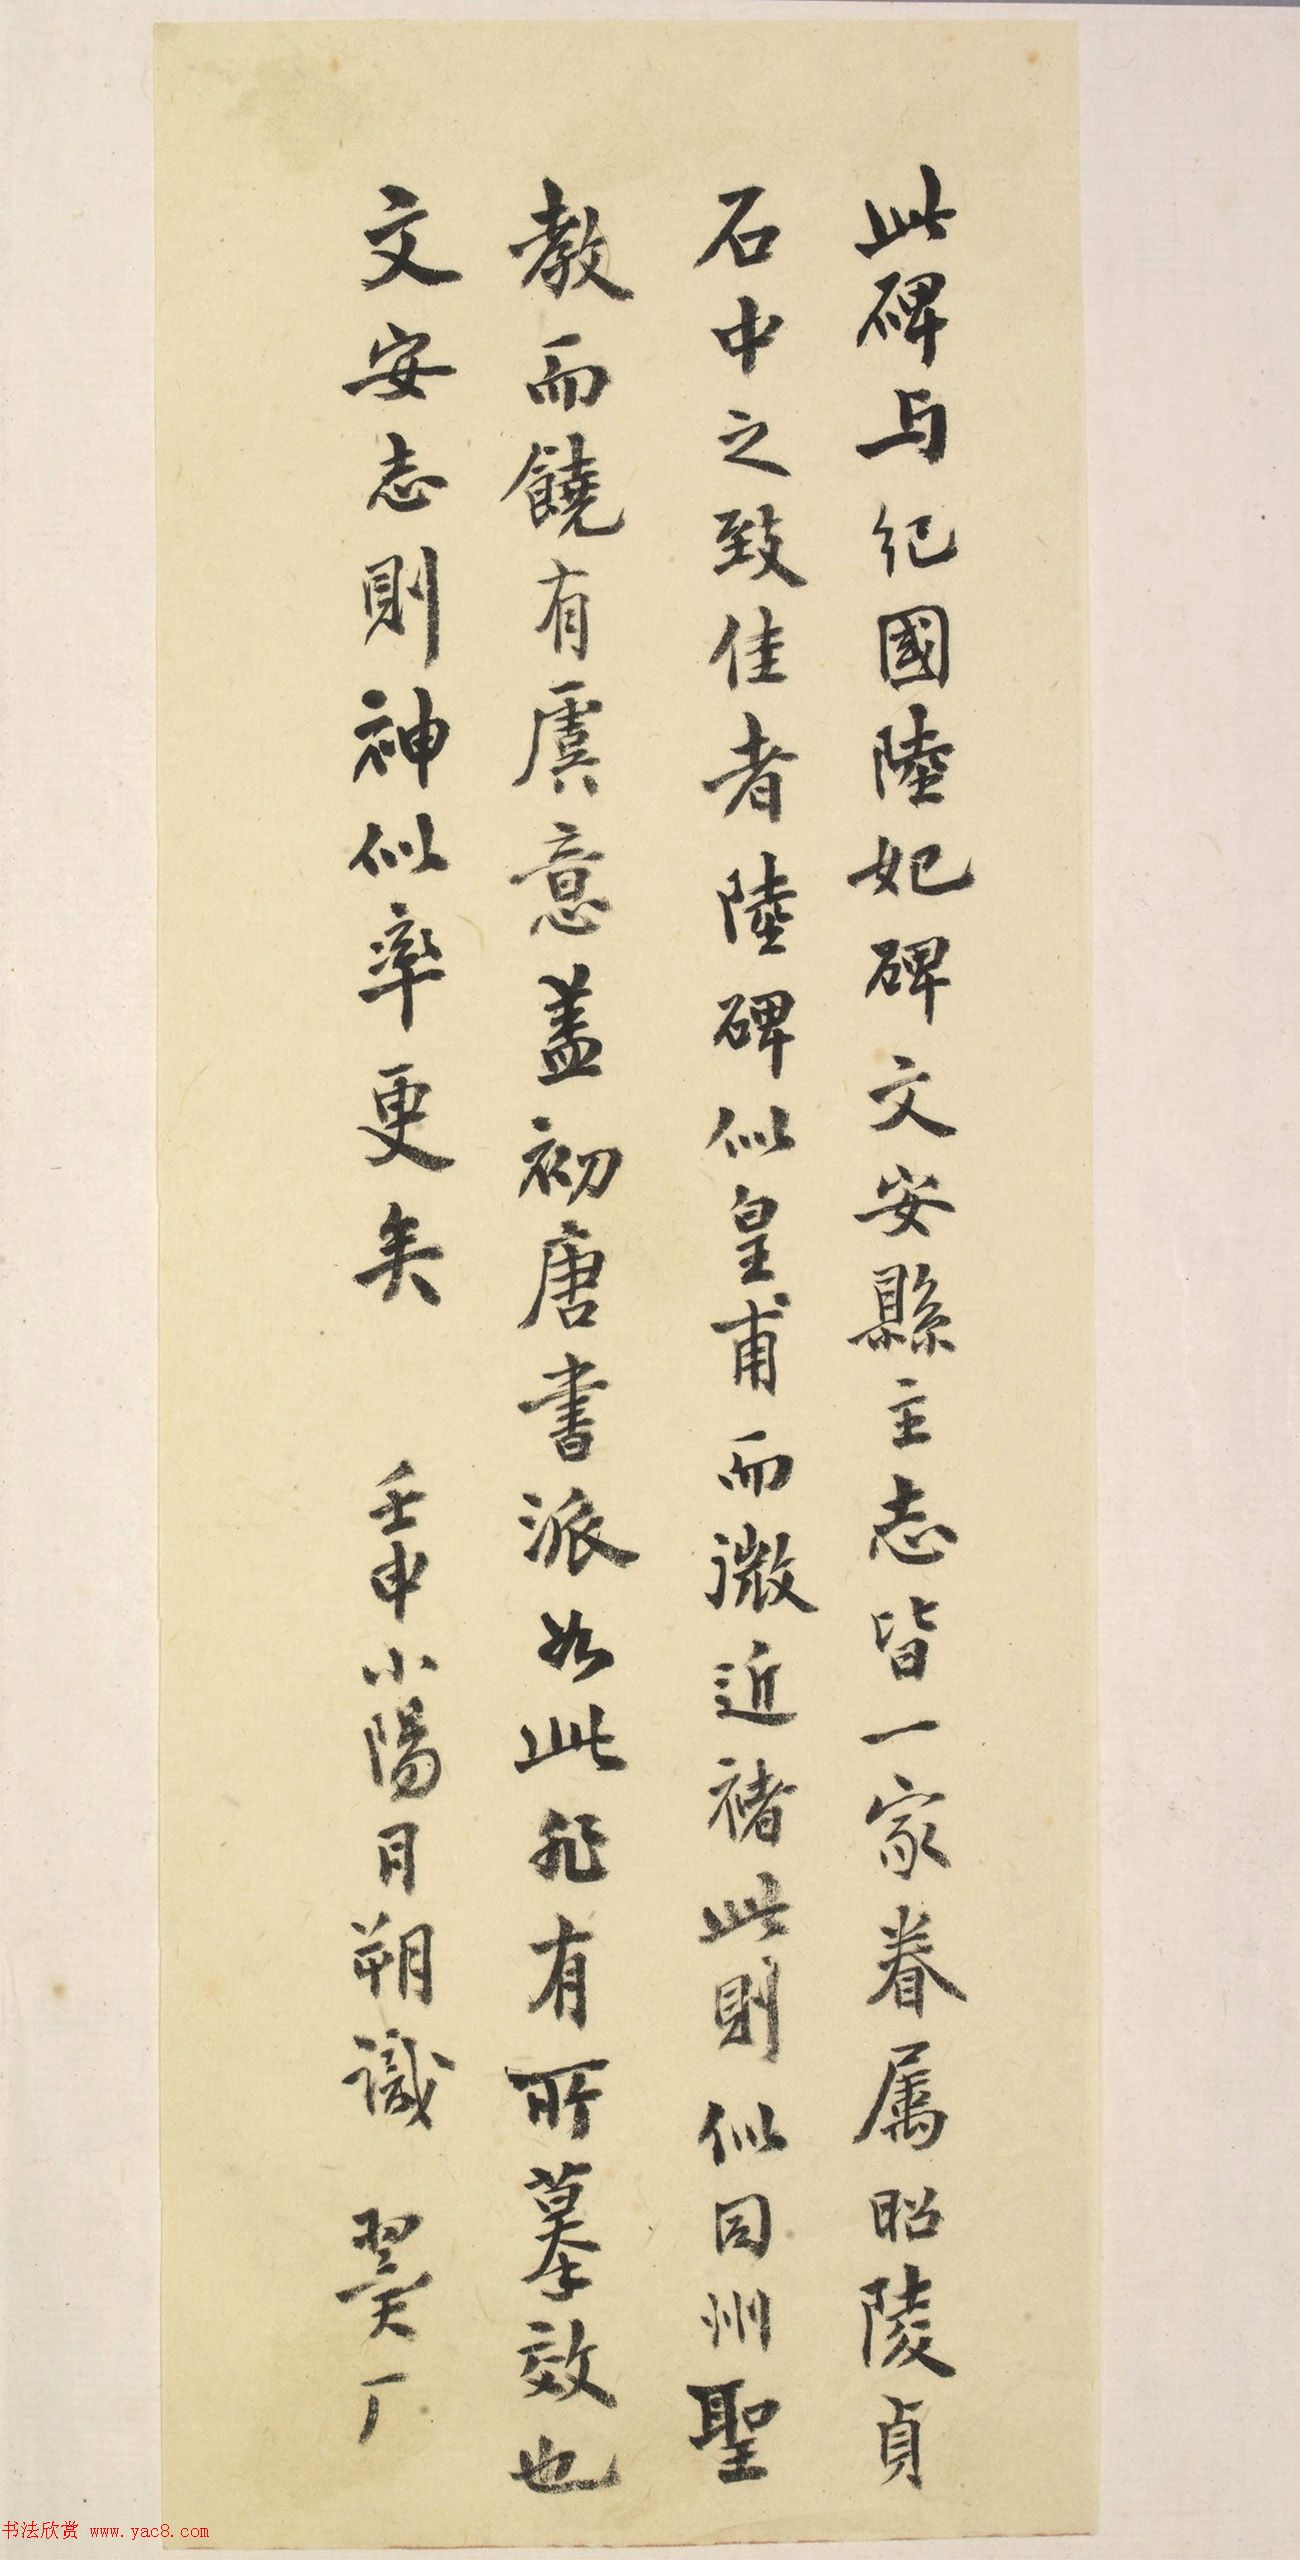 此碑与纪國陸妃碑文安縣主志皆一家眷属昭陵貞
石中之致佳者陸碑似皇甫而微近褚此則似同州聖
教而饒有虞意盖初唐書派如此非有所摹效也
文安志則神似率更矣 壬申小陽月朔識 翼厂
书法欣赏 www.yac8.com